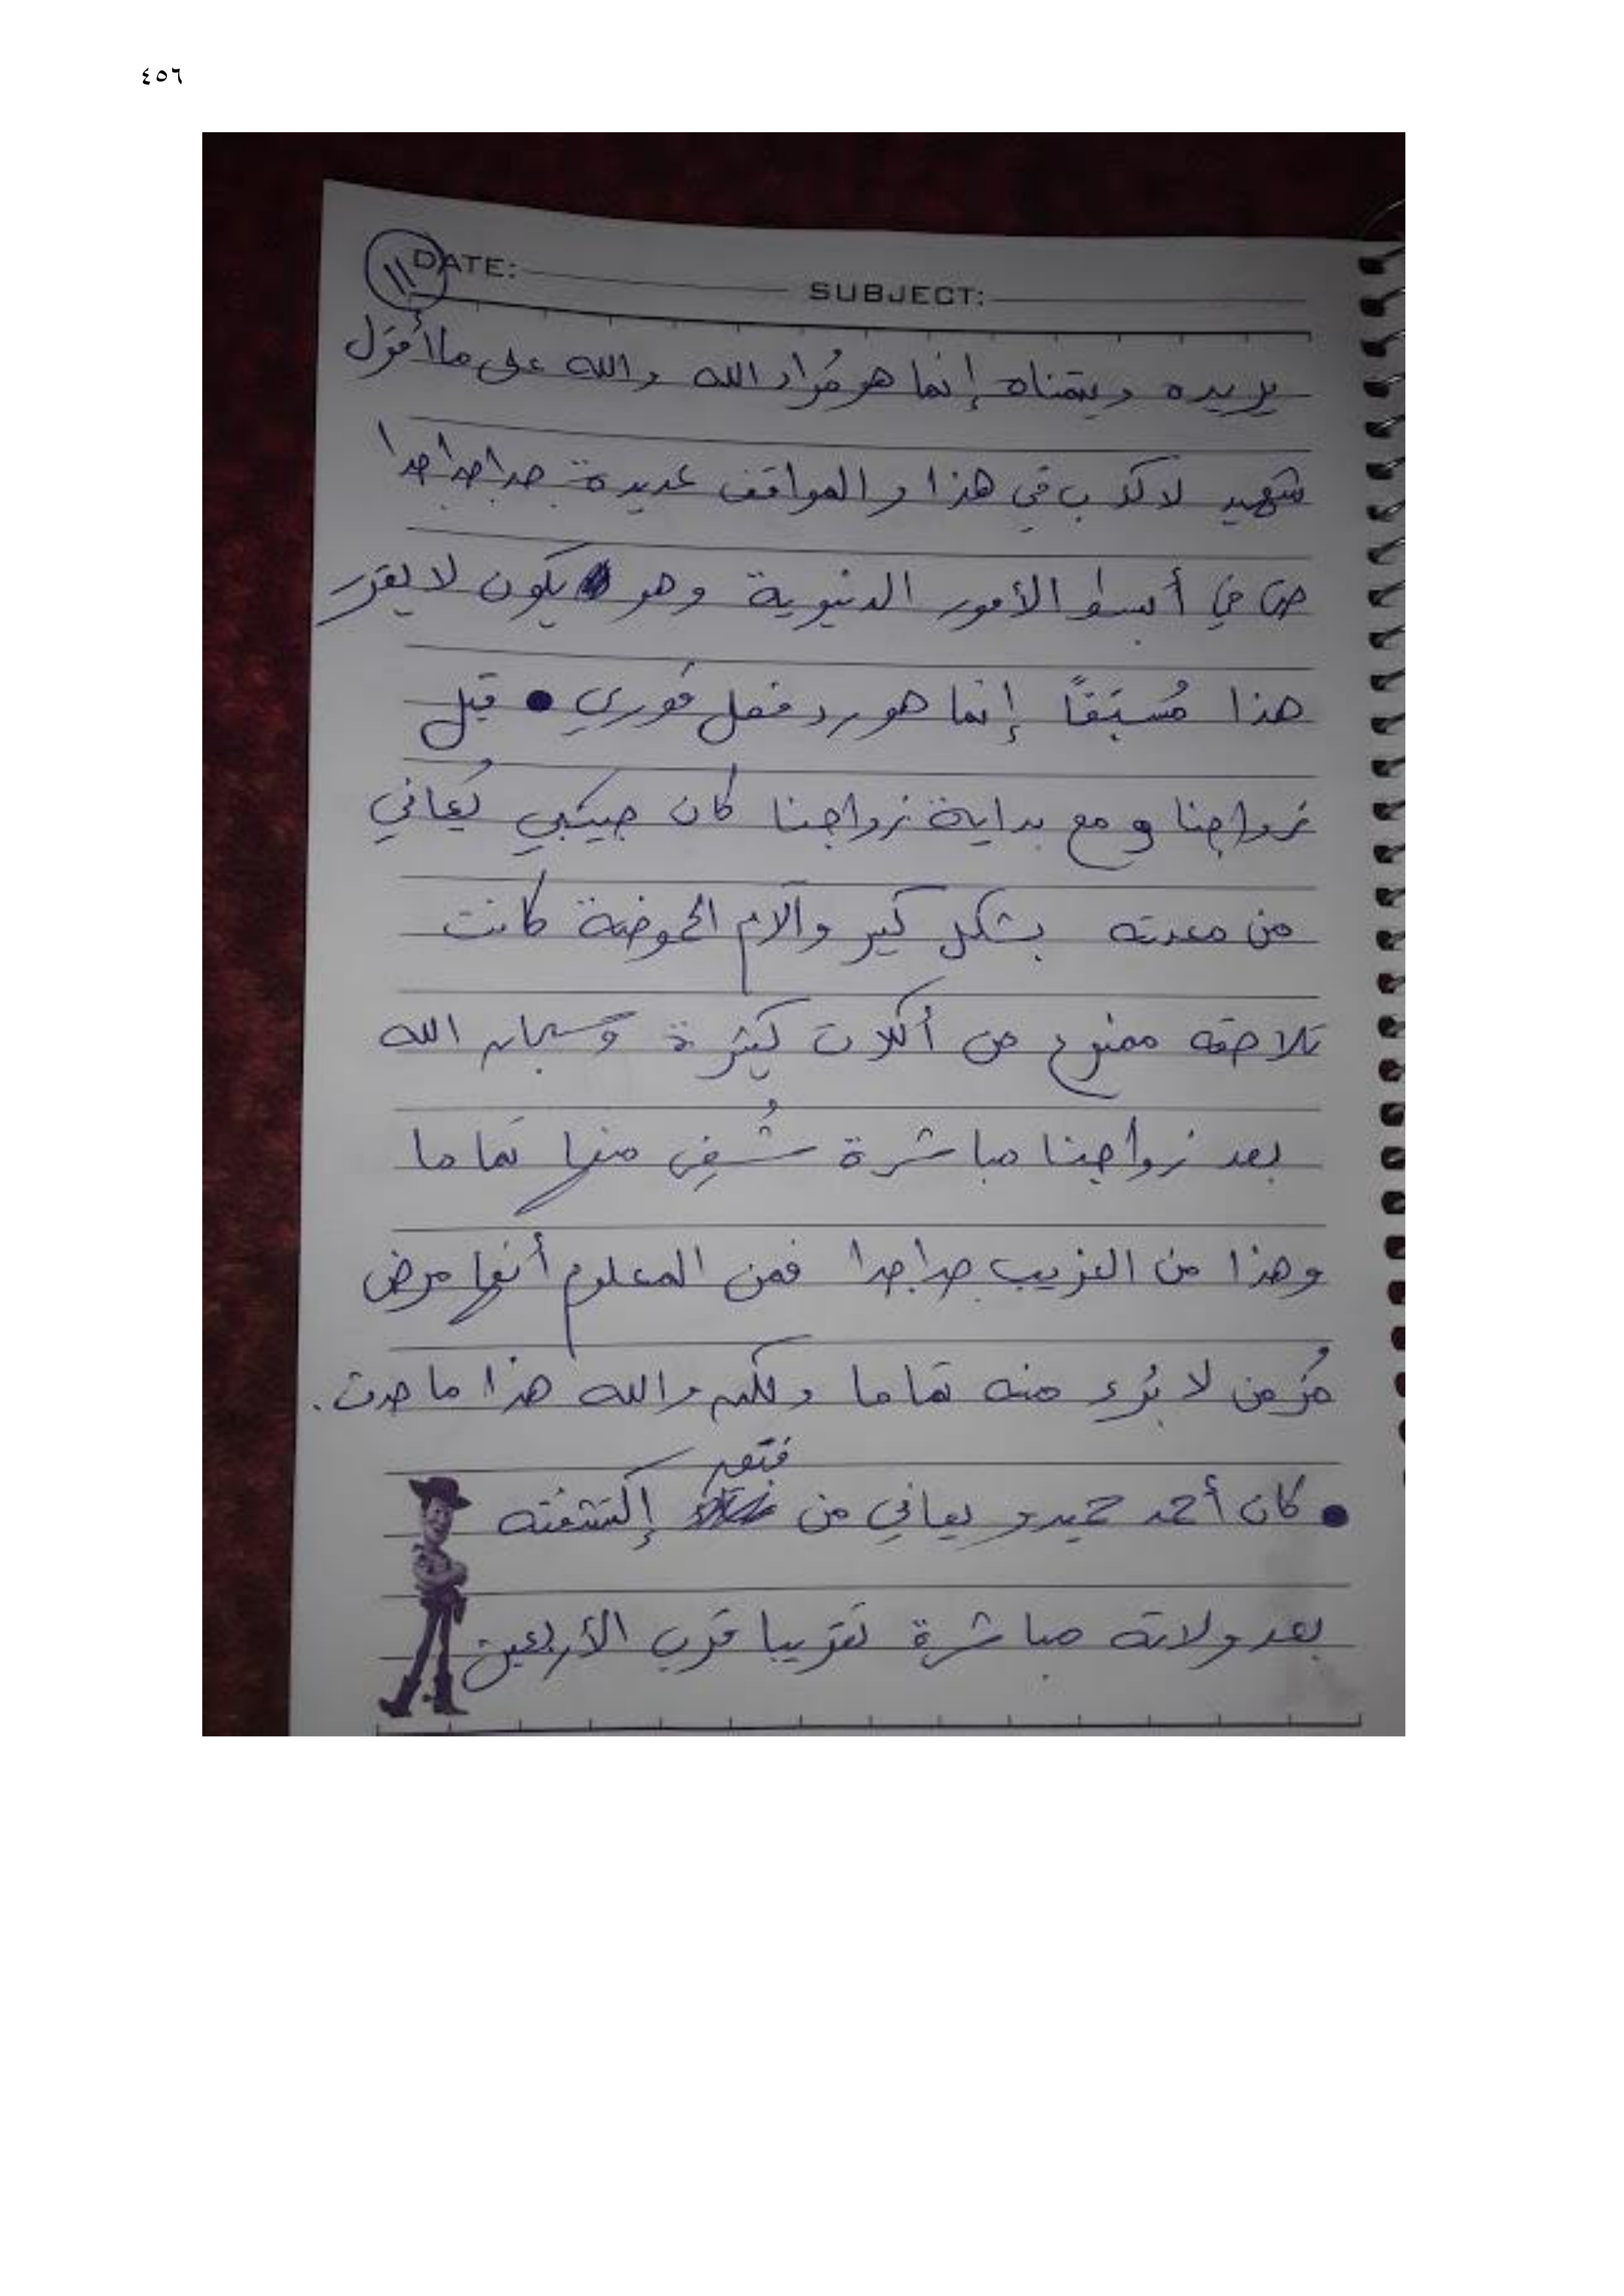 ٤٥٦
١١
DATE:
SUBJECT:
يريده ويتمناه إنما هو مُراد الله والله على ما أقول
شهيد لا كذب في هذا والمواقف عديدة جدا جدا جدا
حتى في أبسط الأمور الدنيوية وهو يكون لا يقرر
هذا مُسبقاً إنما هو رد فعل فوري • قبل
زواجنا و مع بداية زواجنا كان حبيبي يُعاني
من معدته بشكل كبير وآلام الحموضة كانت
تلاحقه ممنوع من أكلات كثيرة وسبحان الله
بعد زواجنا مباشرة شُفِي منها تماما
وهذا من الغريب جدا جدا فمن المعلوم أنها مرض
مُزمن لا بُرء منه تماما ولكن والله هذا ما حدث.
• كان أحمد حميدو يعاني من فتق إكتشفته
بعد ولادته مباشرة تقريبا قرب الأربعين